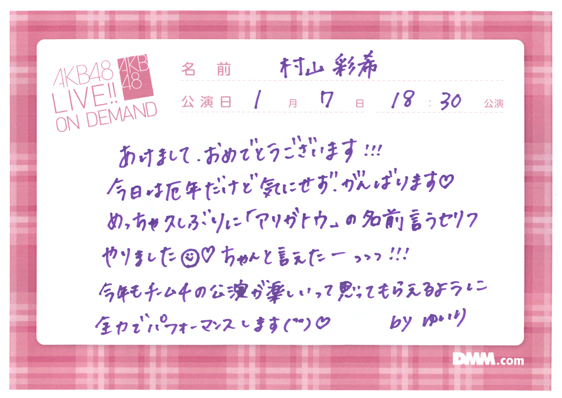 AKB48
LIVE!!
ON DEMAND
AKB
48
名前 村山 彩希
公演日 1月 7日 18:30公演
あけまして、おめでとうございます!!!
今日は厄年だけど気にせず、がんばります♡
めっちゃ久しぶりに「アリガトウ」の名前言うセリフ
やりました☺♡ちゃんと言えたーっっっ!!!
今年もチーム4の公演が楽しいって思ってもらえるように
全力でパフォーマンスします(˘˘)♡ by ゆいり
DMM.com